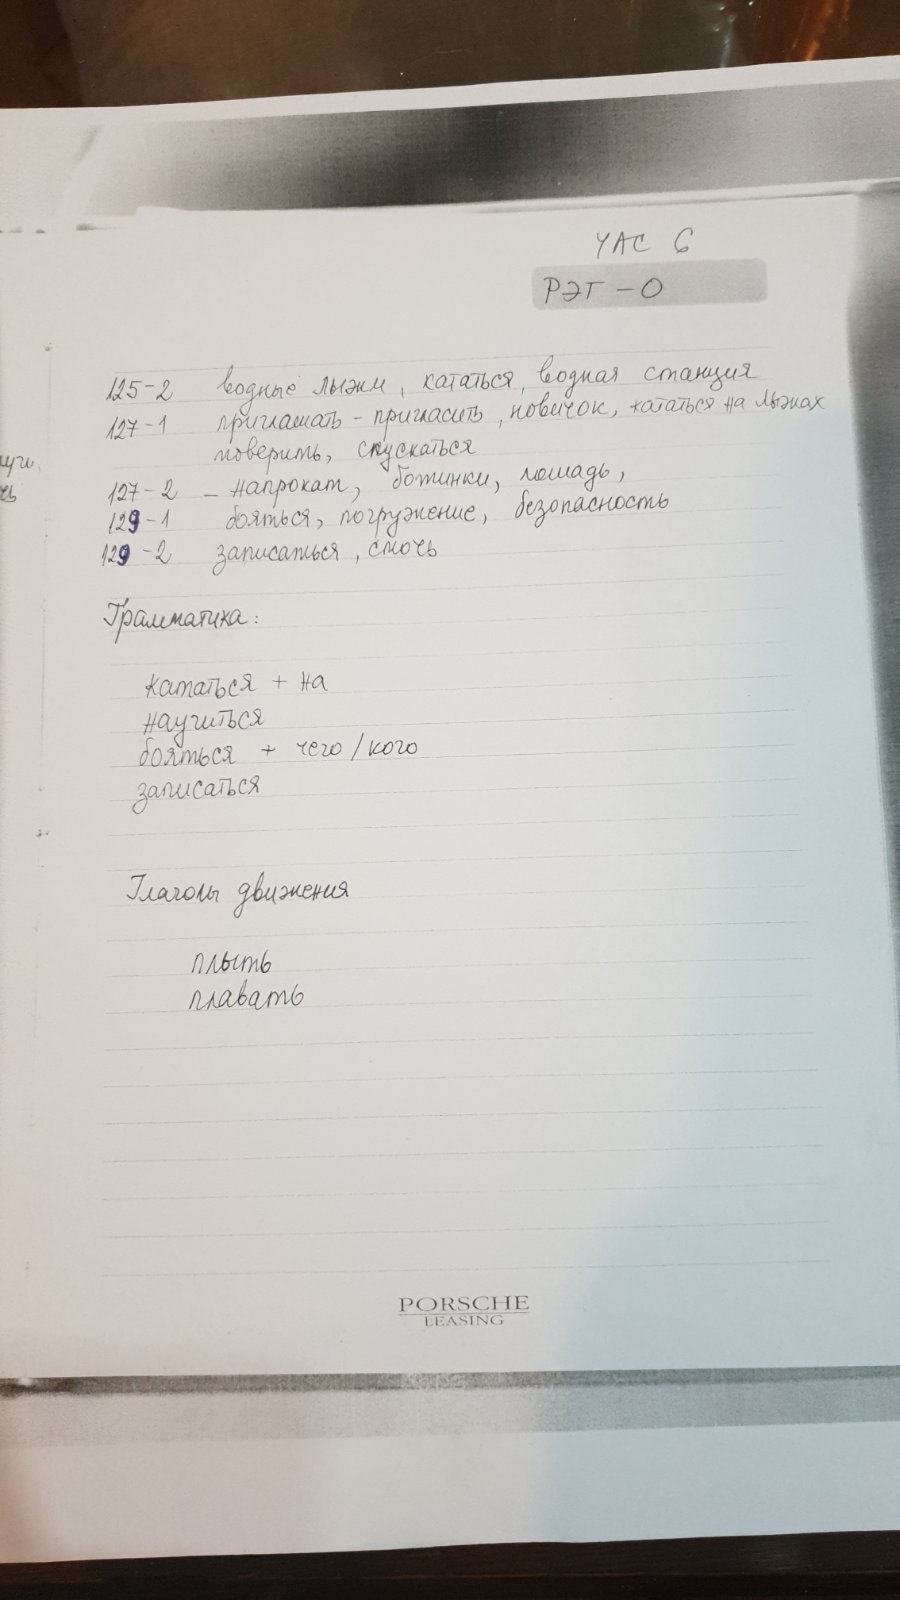 ЧАС 6
РЭГ - О
125-2 водные лыжи, кататься, водная станция
127-1 приглашать - пригласить, новичок, кататься на лыжах
поверить, спускаться
127-2 - напрокат, ботинки, лошадь,
129-1 бояться, погружение, безопасность
129-2 записаться, смочь
Грамматика:
кататься + на
научиться
бояться + чего/кого
записаться
Глаголы движения
плыть
плавать
PORSCHE
LEASING